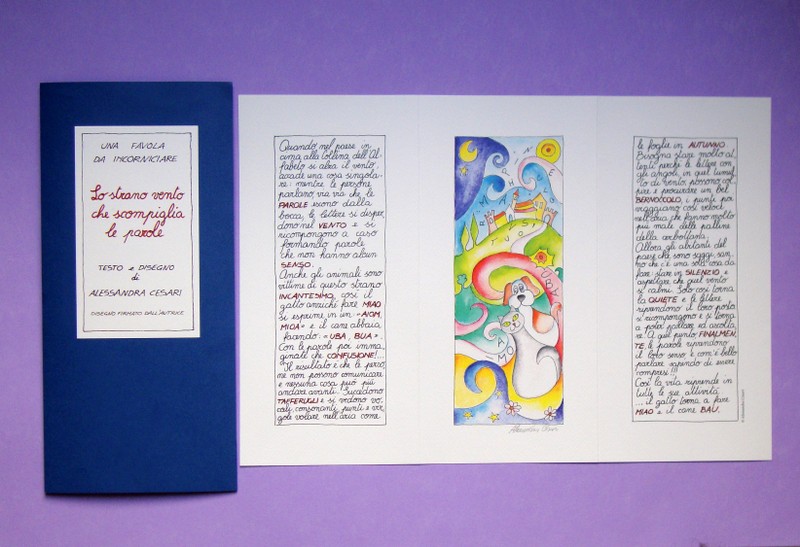 UNA FAVOLA
DA INCORNICIARE
Lo strano vento
che scompiglia
le parole
TESTO e DISEGNO
di
ALESSANDRA CESARI
DISEGNO FIRMATO DALL'AUTRICE
Quando nel paese in
cima alla collina dell'Al-
fabeto si alza il vento,
accade una cosa singola-
re: mentre le persone
parlano, via via che le
PAROLE escono dalla
bocca, le lettere si disper-
dono nel VENTO e si
ricompongono a caso
formando parole
che non hanno alcun
SENSO.
Anche gli animali sono
vittime di questo strano
INCANTESIMO, così il
gatto anziché fare MIAO
si esprime in un «AIOM,
MIOA» e il cane abbaia
facendo: «UBA, BUA».
Con le parole poi imma-
ginate che CONFUSIONE!...
Il risultato è che le perso-
ne non possono comunicare
e nessuna cosa può più
andare avanti. Succedono
TAFFERUGLI e si vedono vo-
cali, consonanti, punti e vir-
gole volare nell'aria come
le foglie in AUTUNNO.
Bisogna stare molto at-
tenti perché le lettere con
gli angoli, in quel tumul-
to di vento, possono col-
pire e procurare un bel
BERNOCCOLO, i punti poi
viaggiano così veloci
nell'aria che fanno molto
più male delle palline
della cerbottana.
Allora gli abitanti del
paese che sono saggi, san-
no che c'è una sola cosa da
fare: stare in SILENZIO e
aspettare che quel vento
si calmi. Solo così torna
la QUIETE e le lettere
riprendono il loro posto
si ricompongono e si torna
a poter parlare ed ascolta-
re. A quel punto FINALMEN-
TE, le parole riprendono
il loro senso e com'è bello
parlare sapendo di essere
compresi!!!
Così la vita riprende in
tutte le sue attività
... il gatto torna a fare
MIAO e il cane BAU.